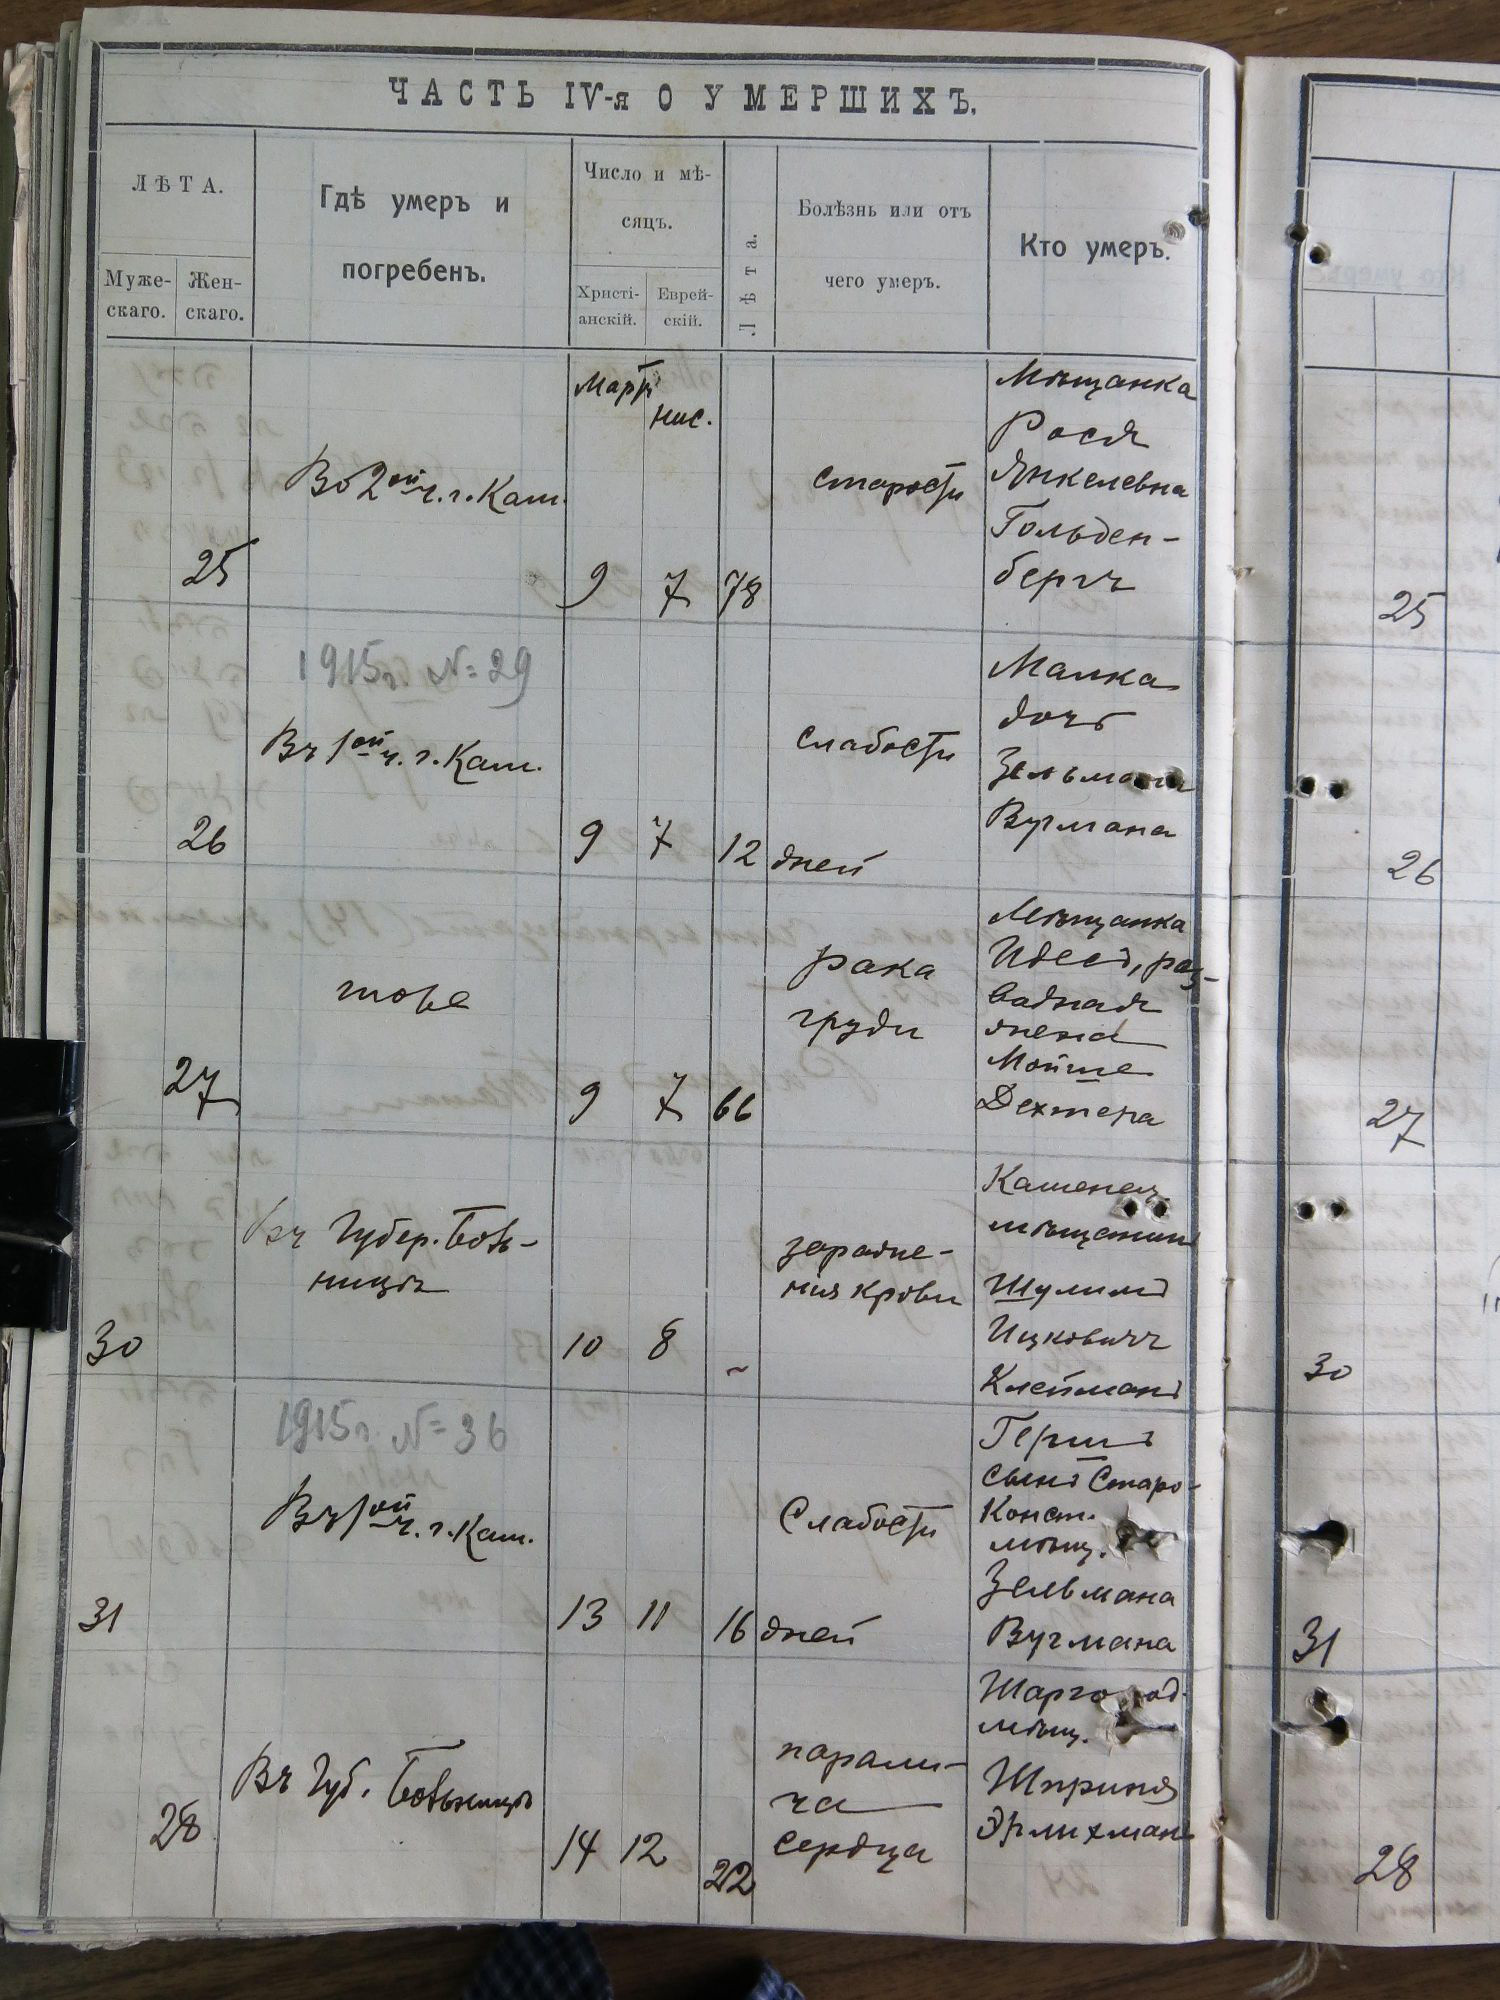 ЧАСТЬ IV-я О УМЕРШИХЪ.
ЛѢТА.
Муже-
скаго.
Жен-
скаго.
Гдѣ умеръ и
погребенъ.
Число и мѣ-
сяцъ.
Христі-
анскій.
Еврей-
скій.
Лѣта.
Болѣзнь или отъ
чего умеръ.
Кто умеръ.
Мартъ
нис.
25
Во 2ой ч. г. Кам.
9
7
78
старости
Мѣщанка
Рося
Янкелевна
Гольден-
бергъ
25
1915г. №29
26
Въ 1ой ч. г. Кам.
9
7
12 дней
слабости
Малка
дочь
Зельмана
Вугмана
26
27
тоже
9
7
66
рака
груди
Мѣщанка
Идесъ, раз-
водная
жена
Мойше
Дехтера
27
30
Въ Губер. Боль-
ницѣ
10
8
~
зараже-
ния крови
Каменец.
мѣщанинъ
Шулимъ
Ицковичъ
Клейманъ
30
1915г. №36
31
Въ 1ой ч. г. Кам.
13
11
16 дней
Слабости
Гершъ
сынъ Старо-
Конст.
мѣщ.
Зельмана
Вугмана
31
28
Въ Губ. Больницѣ
14
12
22
парали-
ча
сердца
Шаргород.
мѣщ.
Шприня
Эрлихманъ
28